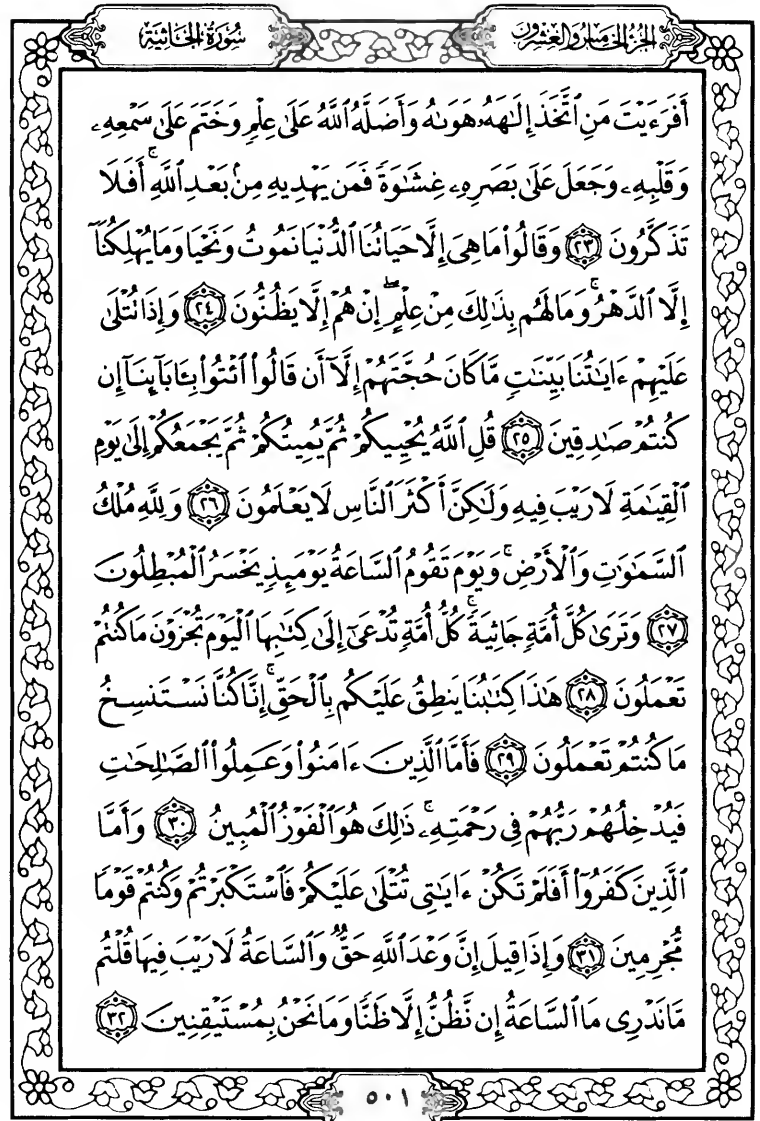 سورة الجاثية
الجزء الخامس والعشرون
أَفَرَءَيْتَ مَنِ ٱتَّخَذَ إِلَٰهَهُۥ هَوَىٰهُ وَأَضَلَّهُ ٱللَّهُ عَلَىٰ عِلْمٍ وَخَتَمَ عَلَىٰ سَمْعِهِۦ
وَقَلْبِهِۦ وَجَعَلَ عَلَىٰ بَصَرِهِۦ غِشَٰوَةً فَمَن يَهْدِيهِ مِنۢ بَعْدِ ٱللَّهِ ۚ أَفَلَا
تَذَكَّرُونَ ٢٣ وَقَالُوا۟ مَا هِىَ إِلَّا حَيَاتُنَا ٱلدُّنْيَا نَمُوتُ وَنَحْيَا وَمَا يُهْلِكُنَآ
إِلَّا ٱلدَّهْرُ ۚ وَمَا لَهُم بِذَٰلِكَ مِنْ عِلْمٍ ۖ إِنْ هُمْ إِلَّا يَظُنُّونَ ٢٤ وَإِذَا تُتْلَىٰ
عَلَيْهِمْ ءَايَٰتُنَا بَيِّنَٰتٍ مَّا كَانَ حُجَّتَهُمْ إِلَّآ أَن قَالُوا۟ ٱئْتُوا۟ بِـَٔابَآئِنَآ إِن
كُنتُمْ صَٰدِقِينَ ٢٥ قُلِ ٱللَّهُ يُحْيِيكُمْ ثُمَّ يُمِيتُكُمْ ثُمَّ يَجْمَعُكُمْ إِلَىٰ يَوْمِ
ٱلْقِيَٰمَةِ لَا رَيْبَ فِيهِ وَلَٰكِنَّ أَكْثَرَ ٱلنَّاسِ لَا يَعْلَمُونَ ٢٦ وَلِلَّهِ مُلْكُ
ٱلسَّمَٰوَٰتِ وَٱلْأَرْضِ ۚ وَيَوْمَ تَقُومُ ٱلسَّاعَةُ يَوْمَئِذٍ يَخْسَرُ ٱلْمُبْطِلُونَ
٢٧ وَتَرَىٰ كُلَّ أُمَّةٍ جَاثِيَةً ۚ كُلُّ أُمَّةٍ تُدْعَىٰٓ إِلَىٰ كِتَٰبِهَا ٱلْيَوْمَ تُجْزَوْنَ مَا كُنتُمْ
تَعْمَلُونَ ٢٨ هَٰذَا كِتَٰبُنَا يَنطِقُ عَلَيْكُم بِٱلْحَقِّ ۚ إِنَّا كُنَّا نَسْتَنسِخُ
مَا كُنتُمْ تَعْمَلُونَ ٢٩ فَأَمَّا ٱلَّذِينَ ءَامَنُوا۟ وَعَمِلُوا۟ ٱلصَّٰلِحَٰتِ
فَيُدْخِلُهُمْ رَبُّهُمْ فِى رَحْمَتِهِۦ ۚ ذَٰلِكَ هُوَ ٱلْفَوْزُ ٱلْمُبِينُ ٣٠ وَأَمَّا
ٱلَّذِينَ كَفَرُوٓا۟ أَفَلَمْ تَكُنْ ءَايَٰتِى تُتْلَىٰ عَلَيْكُمْ فَٱسْتَكْبَرْتُمْ وَكُنتُمْ قَوْمًا
مُّجْرِمِينَ ٣١ وَإِذَا قِيلَ إِنَّ وَعْدَ ٱللَّهِ حَقٌّ وَٱلسَّاعَةُ لَا رَيْبَ فِيهَا قُلْتُم
مَّا نَدْرِى مَا ٱلسَّاعَةُ إِن نَّظُنُّ إِلَّا ظَنًّا وَمَا نَحْنُ بِمُسْتَيْقِنِينَ ٣٢
٥٠١